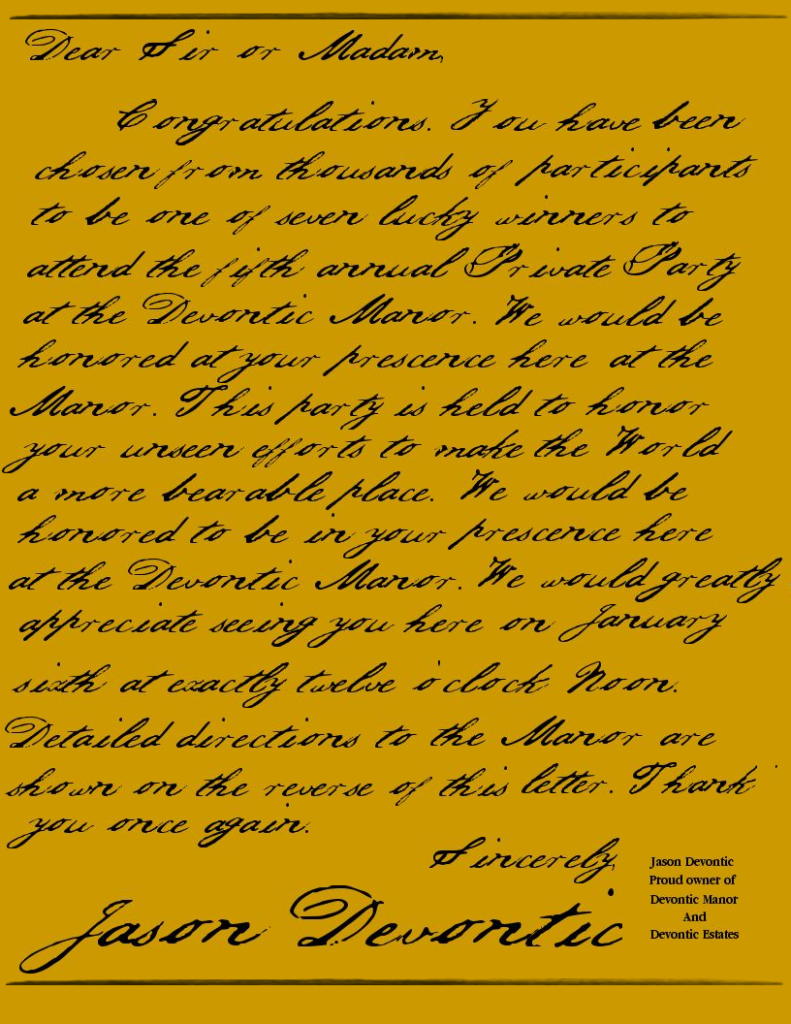 Dear Sir or Madam,
Congratulations. You have been
chosen from thousands of participants
to be one of seven lucky winners to
attend the fifth annual Private Party
at the Devontic Manor. We would be
honored at your prescence here at the
Manor. This party is held to honor
your unseen efforts to make the World
a more bearable place. We would be
honored to be in your prescence here
at the Devontic Manor. We would greatly
appreciate seeing you here on January
sixth at exactly twelve o'clock Noon.
Detailed directions to the Manor are
shown on the reverse of this letter. Thank
you once again.
Sincerely,
Jason Devontic
Jason Devontic
Proud owner of
Devontic Manor
And
Devontic Estates